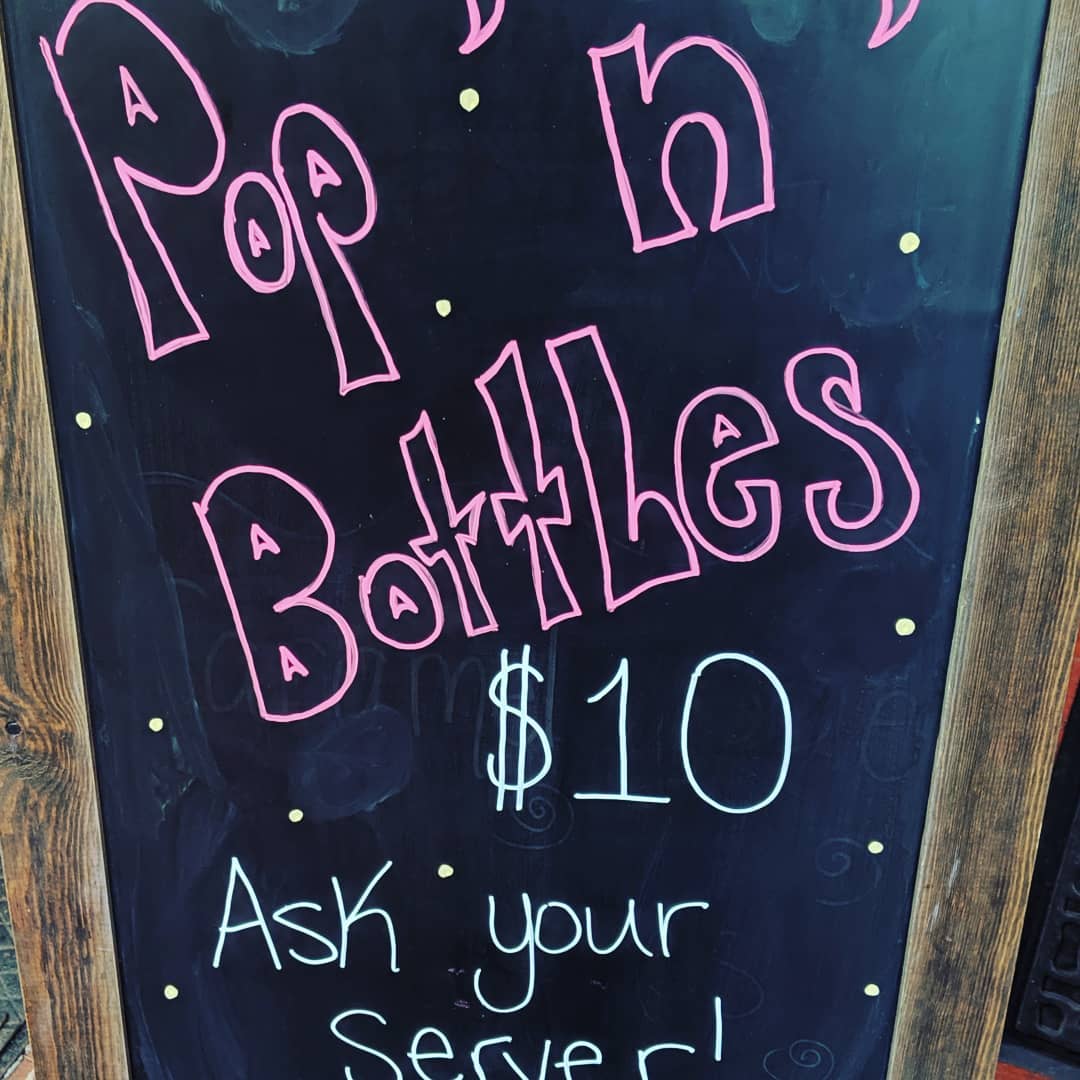 Pop 'n'
Bottles
$10
Ask your
Server!